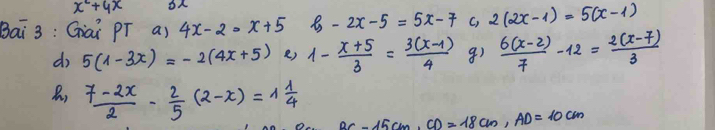 x²+4x 3x
Bài 3 : Giải PT a, 4x-2 = x+5 b, -2x-5 = 5x-7 c, 2(2x-1) = 5(x-1)
d, 5(1-3x) = -2(4x+5) e, 1 - (x+5)/3 = 3(x-1)/4 g, 6(x-2)/7 - 12 = 2(x-7)/3
h, (7-2x)/2 - 2/5 (2-x) = 1 1/4
BC = 15cm, CD = 18cm, AD = 10cm